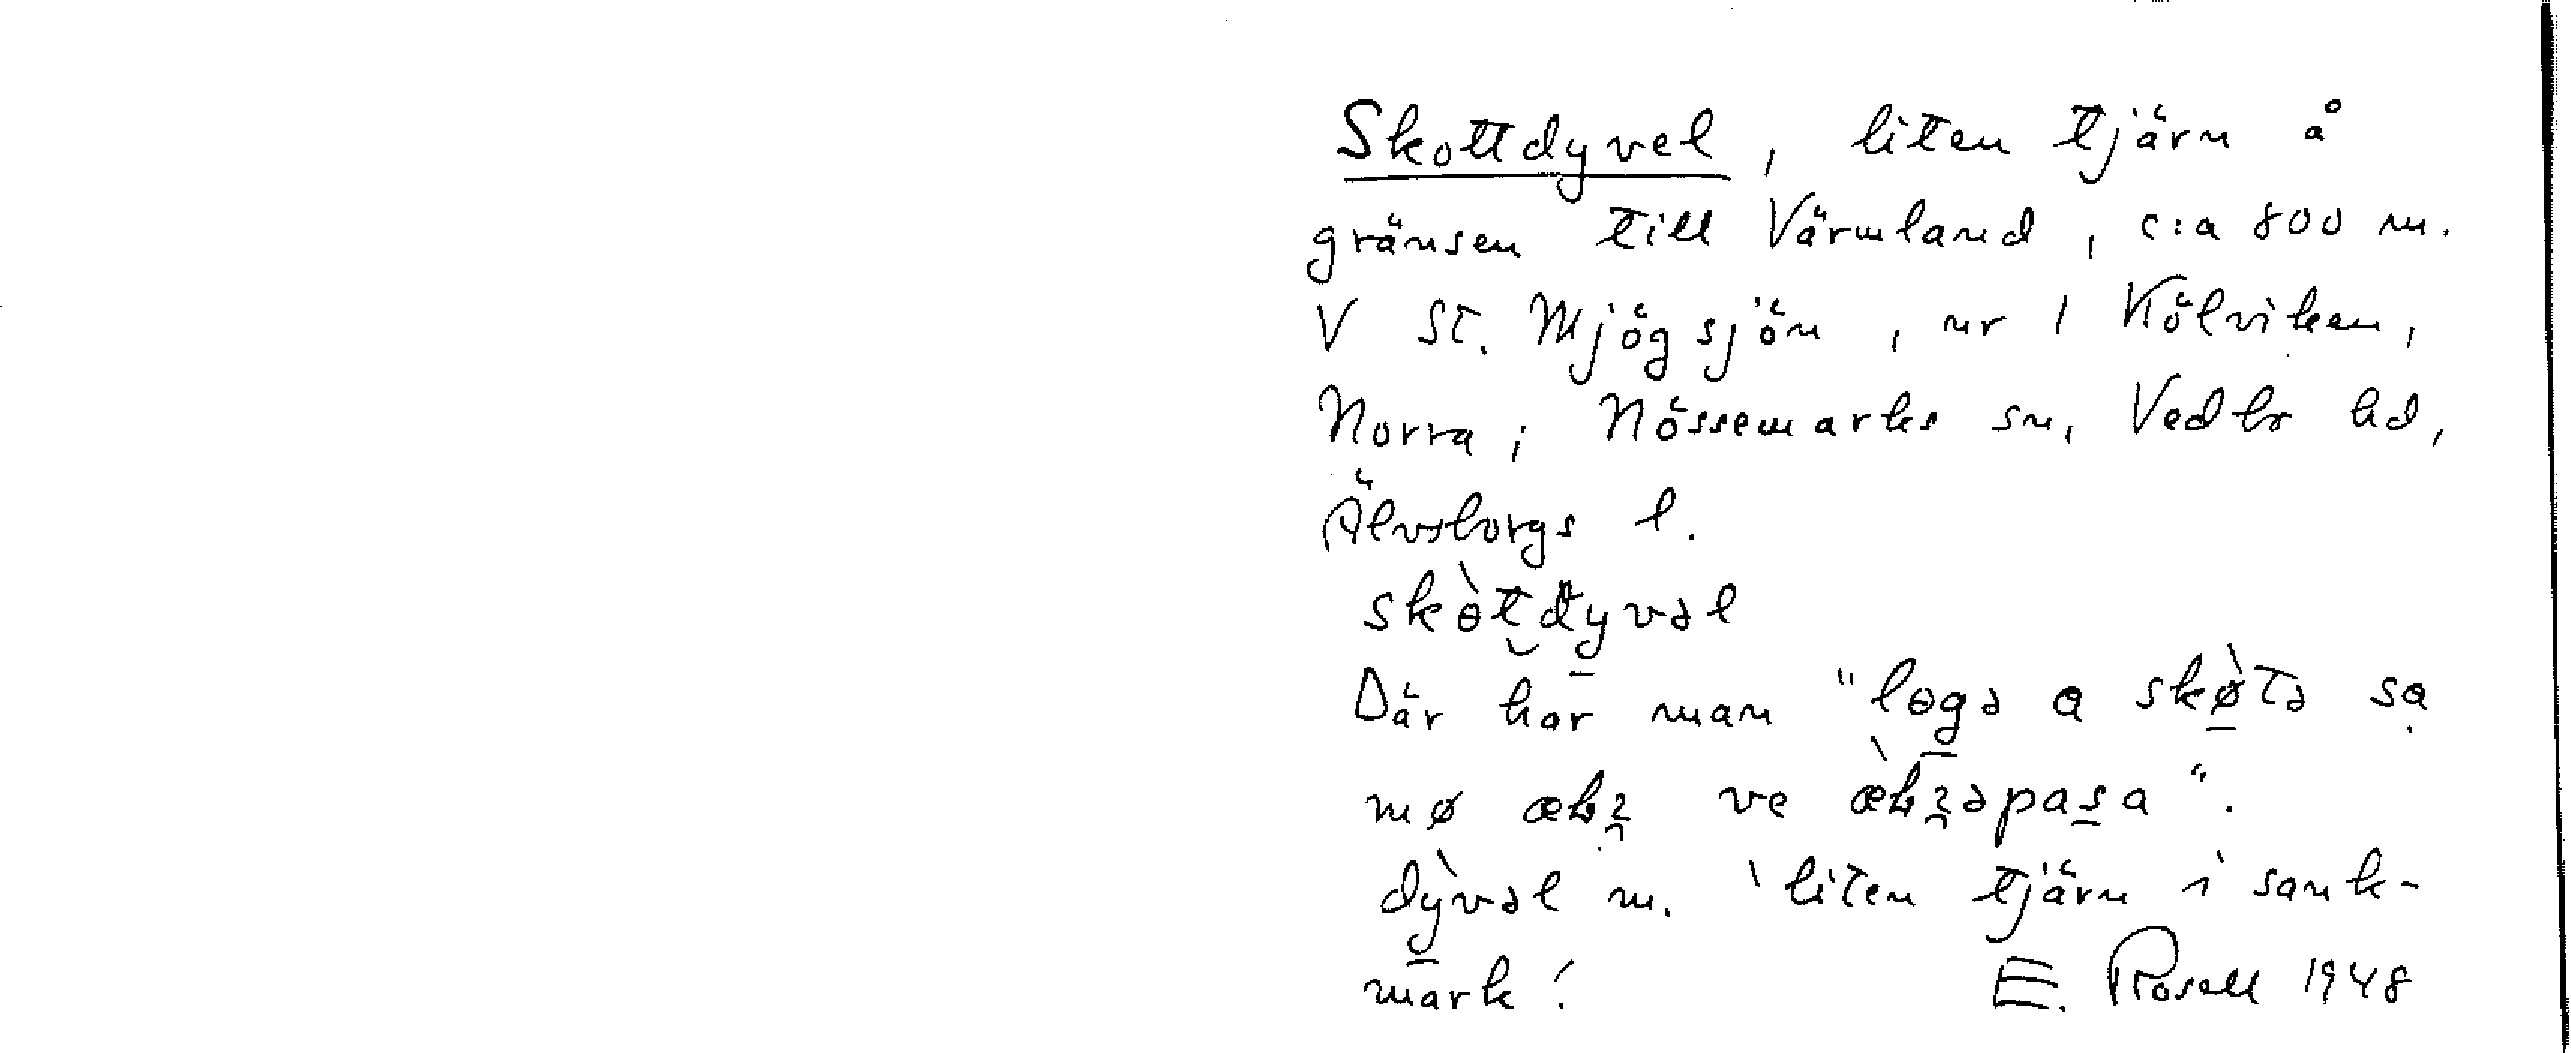 Skottdyvel, liten tjärn å
gränsen till Värmland, c:a 800 m.
V St. Mjögsjön, nr 1 Kölviken,
Norra; Nössemarks sn, Vedbo hd,
Älvsborgs l.
skɵ̀t̮dy̠vəl
Där har man "lɵg̠ə a skø̠̀tə sạ
mø
ve
dỳ̠vəl m. 'liten tjärn i sank-
mark'. E. Rosell 1948